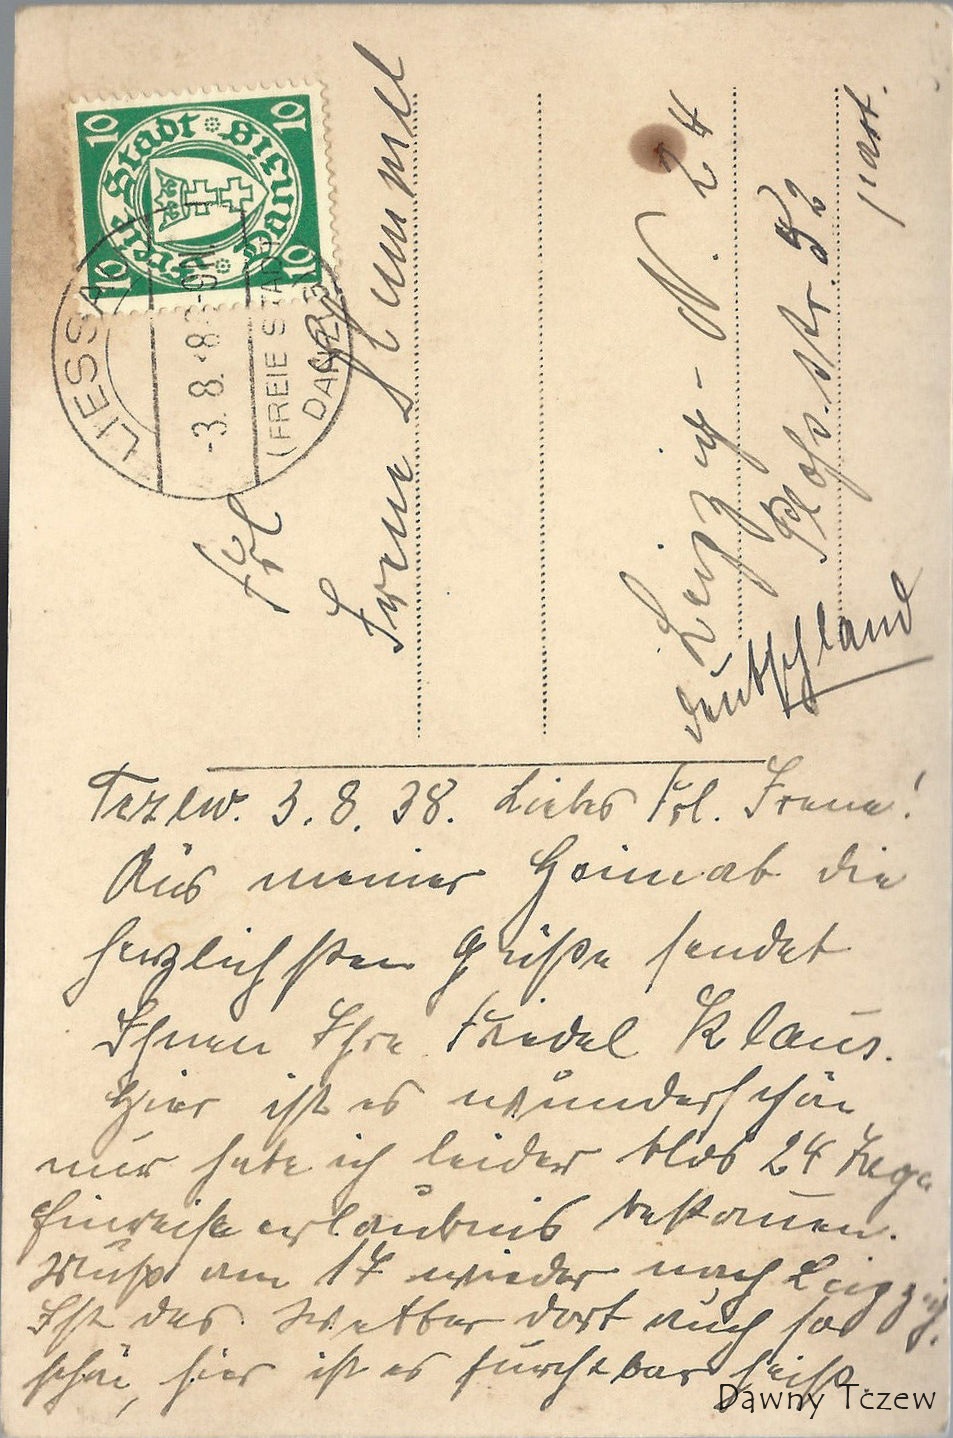 10 10 10 10
Freie Stadt Danzig
LIESSAU
-3.8.38.
(FREIE STADT
DANZIG)
Frl
Irene Hummel
Leipzig - N. 24
str. 52
part.
Deutschland
Tczew. 3.8.38. Liebes Frl. Irene!
Aus meiner Heimat die
herzlichsten Grüße sendet
Ihnen Ihre Friedel Klaus.
Hier ist es wunderschön
nur habe ich leider blos 24 Tage
Einreiseerlaubnis bekom̄en.
Muß am 17 wieder nach Leipzig.
Ist das Wetter dort auch so
schön, hier ist es furchtbar heiß.
Dawny Tczew